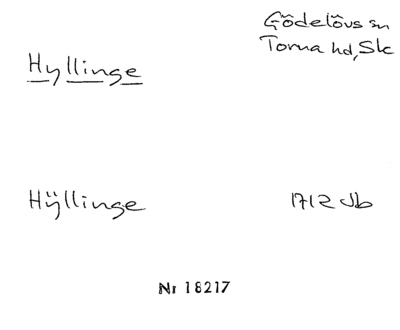 Gödelövs sn
Torna hd, Sk
Hyllinge
Hÿllinge
1712 Jb
Nr 18217